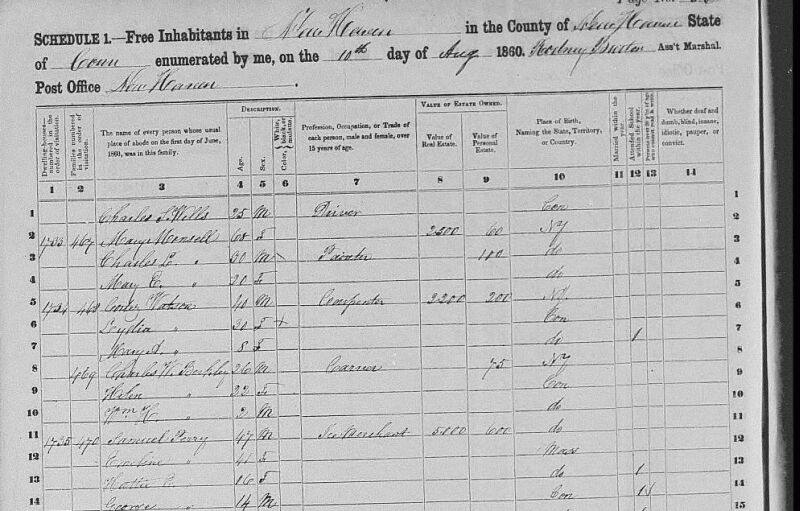 Page No.
SCHEDULE 1.—Free Inhabitants in New Haven in the County of New Haven State
of Conn enumerated by me, on the 10th day of Aug 1860. Rodney Burton Ass't Marshal.
Post Office New Haven
Dwelling-houses— numbered in the order of visitation.
Families numbered in the order of visitation.
The name of every person whose usual place of abode on the first day of June, 1860, was in this family.
DESCRIPTION.
Age.
Sex.
Color, White, black, or mulatto.
Profession, Occupation, or Trade of each person, male and female, over 15 years of age.
VALUE OF ESTATE OWNED.
Value of Real Estate.
Value of Personal Estate.
Place of Birth, Naming the State, Territory, or Country.
Married within the year.
Attended School within the year.
Persons over 20 y'rs of age who cannot read & write.
Whether deaf and dumb, blind, insane, idiotic, pauper, or convict.
1 2 3 4 5 6 7 8 9 10 11 12 13 14
1 Charles S. Wells 25 M Driver Con 1
2 1733 467 Mary Monsell 68 F 2200 60 NY 2
3 Charles E. " 30 M Painter 100 do 3
4 Mary E. " 20 F do 4
5 1734 468 Watson 40 M Carpenter 2200 200 NY 5
6 Lydia " 30 F + Con 6
7 Mary A. " 8 F do 1 7
8 469 Charles W. 26 M Carver 75 NY 8
9 Helen " 22 F Con 9
10 Wm H. " 2 M do 10
11 1735 470 Samuel Perry 47 M Merchant 5000 600 do 11
12 Emeline " 41 F Mass 12
13 Hattie E. " 16 F do 1 13
14 George " 14 M Con 1 14
15